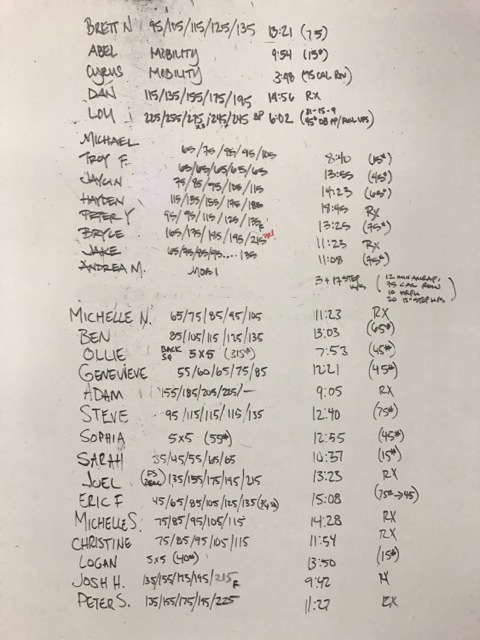 BRETT N 95/105/115/125/135 13:21 (75)
ABEL MOBILITY 9:54 (15#)
CYRUS MOBILITY 3:48 (75 CAL ROW)
DAN 115/135/155/175/195 14:56 RX
LOU 225/255/275/245/245 BP 6:02 (21-15-9
MICHAEL
TROY F. 65/75/85/95/105 8:40 (65#)
JAYLIN 65/65/65/65/65 13:55 (45#)
HAYDEN 75/85/95/105/115 14:23 (65#)
PETER Y 115/135/155/175/185 18:45 RX
BRYCE 95/95/115/125/135F 13:25 (75#)
JAKE 165/175/185/195/215 PR! 11:23 RX
ANDREA M. 65/75/85/95....135 11:08 (75#)
MOBI 3+17 STEP UPS (12 MIN AMRAP,
CAL ROW
20 12" STEP UPS
MICHELLE N. 65/75/85/95/105 11:23 RX
BEN 85/105/115/125/135 13:03 (65#)
OLLIE BACK SQ 5x5 (315#) 7:53 (45#)
GENEVIEVE 55/60/65/75/85 12:21 (45#)
ADAM 155/185/205/225/— 9:05 RX
STEVE 95/115/115/115/135 12:40 (75#)
SOPHIA 5x5 (55#) 12:55 (45#)
SARAH 35/45/55/65/65 10:37 (15#)
JOEL (FS 135/155/175/195/215 13:23 RX
ERIC F 45/65/85/105/125/135 15:08 (75#→45)
MICHELLE S. 75/85/95/105/115 14:28 RX
CHRISTINE 75/85/95/105/115 11:54 RX
LOGAN 5x5 (40#) 13:50 (15#)
JOSH H. 135/155/175/195/215F 9:42
PETER S. 135/155/175/195/225 11:27 RX